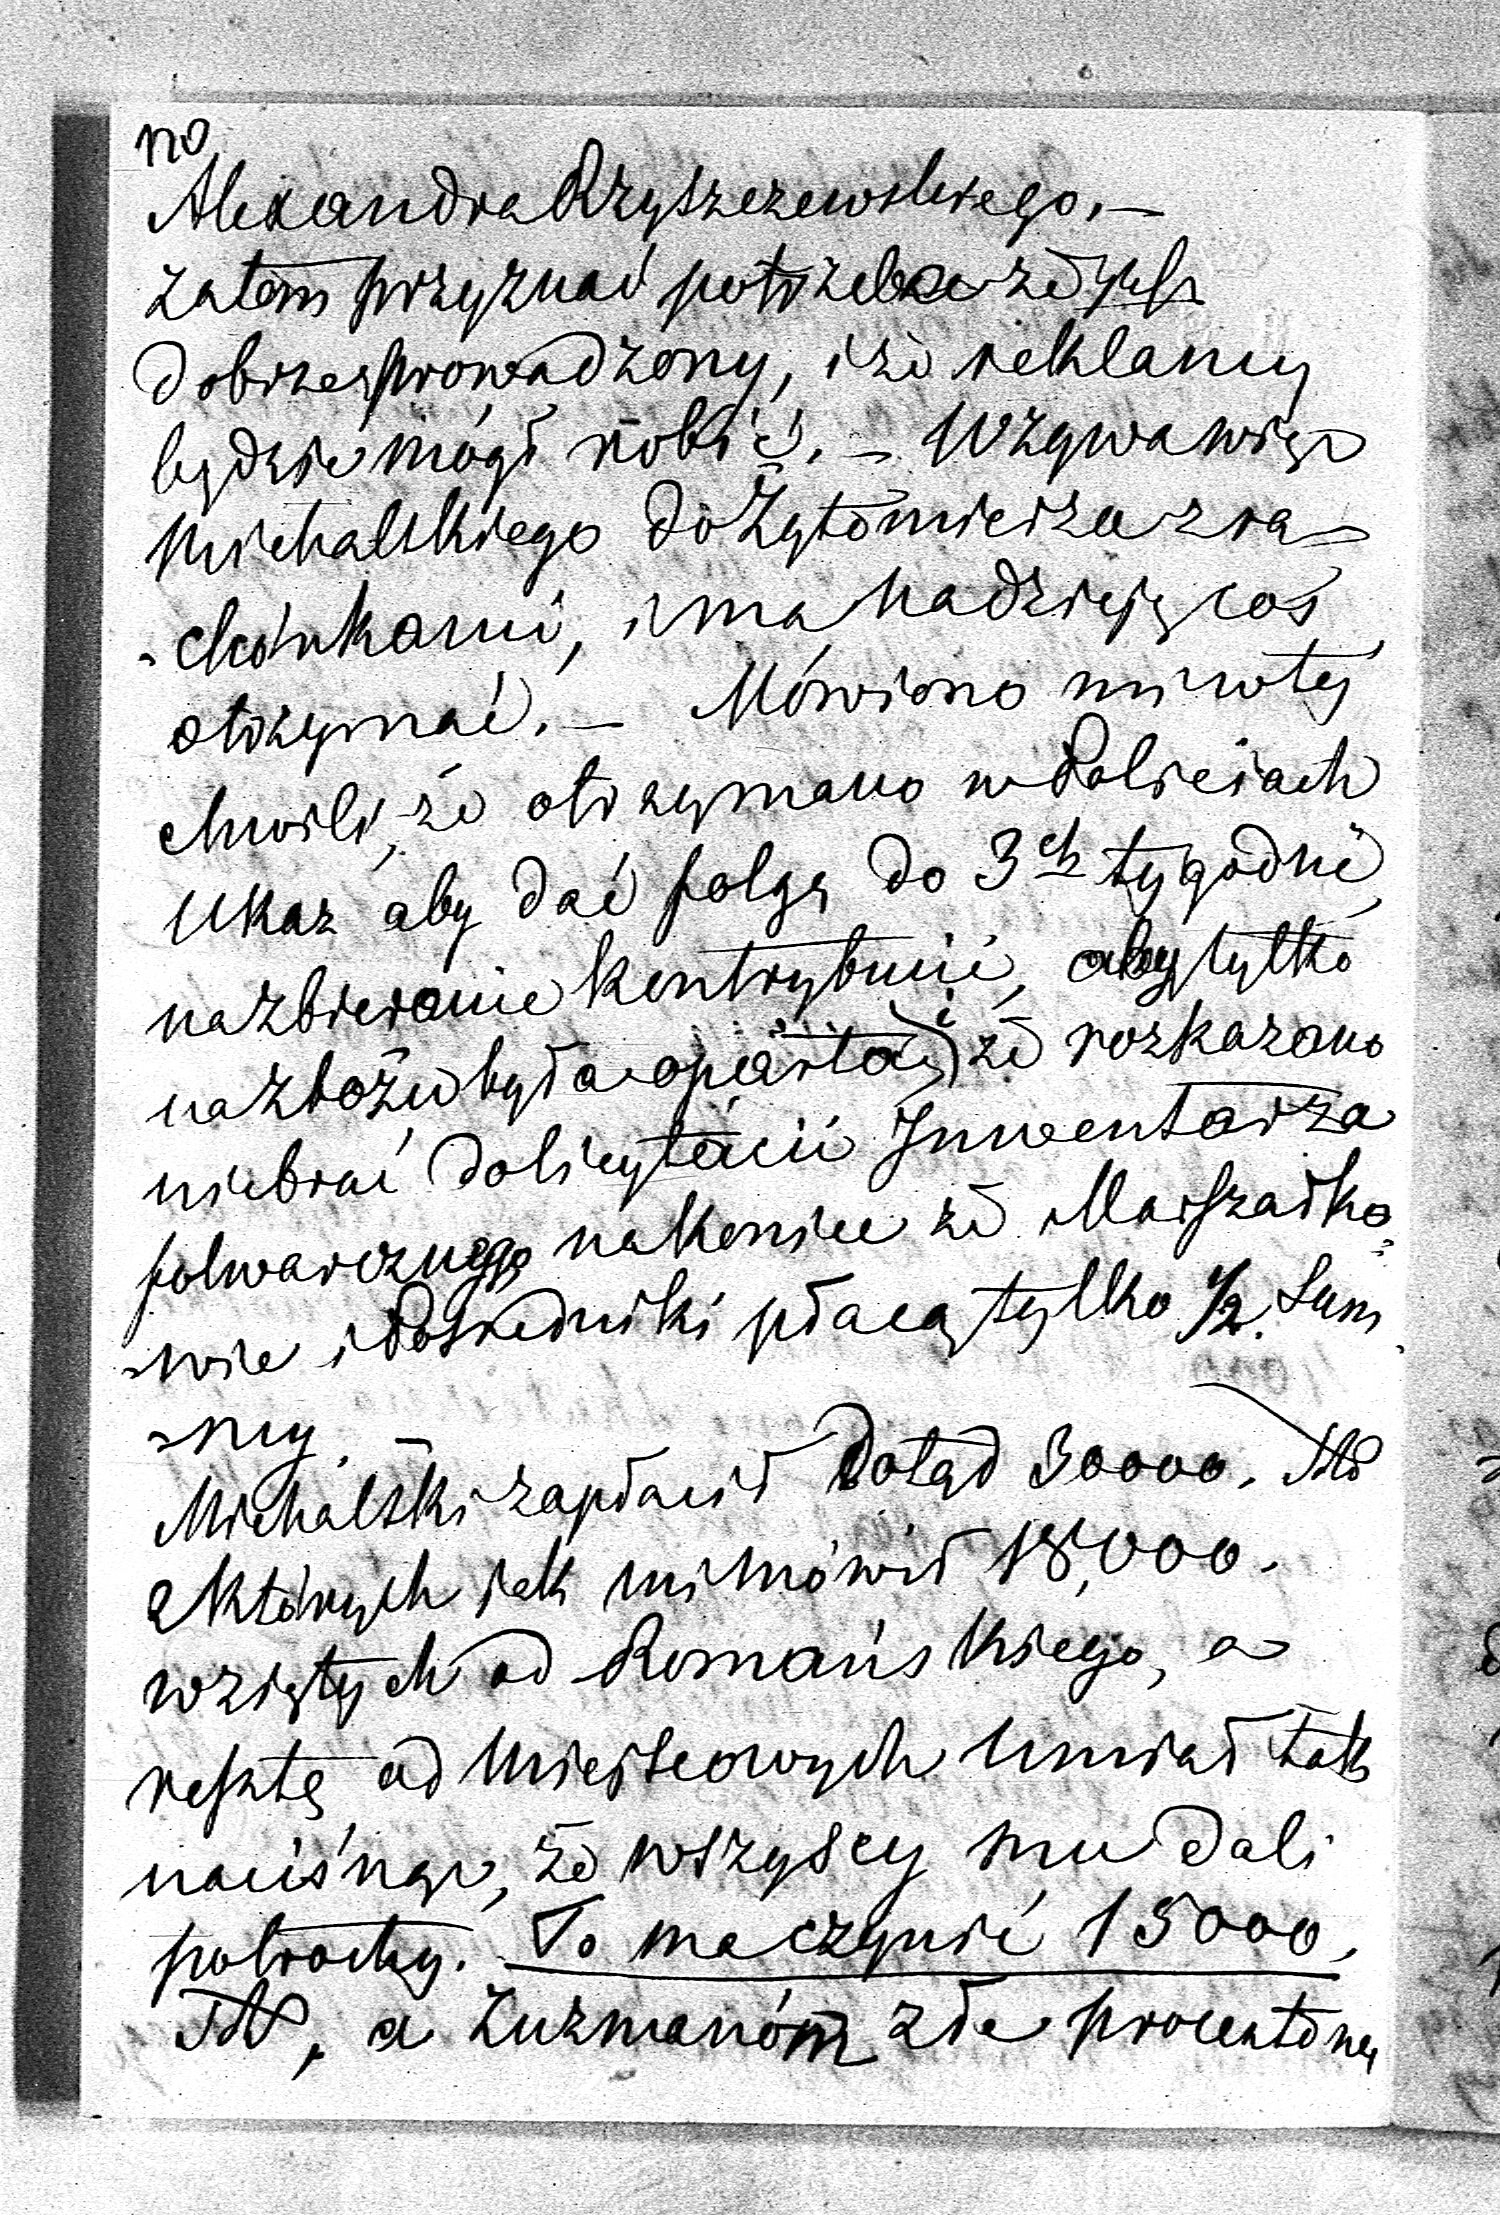 no
Alexandra Rzyszczewskiego. —
zatem przyznać potrzeba że jest
dobrze prowadzony, i że reklamy
będzie mógł robić. — Wzywa więc
Michalskiego do Żytomierza z ra=
-chunkami, i ma nadzieję coś
otrzymać. — Mówiono mi w téj
chwili, że otrzymano w Policiach
Ukaz aby dać folgę do 3ch tygodni
na zbieranie kontrybucii, aby tylko
na zbożu była oparta, i że rozkazano
niebrać do licytacii Inwentarza
folwarcznego nakoniec że Marszałko=
-wie i Pośredniki płacą tylko 1/2. Sum
-my.
Michalski zapłacił dotąd 30000.
z których jak mi mówił 18,000.
wziętych od Romańskiego, a
resztę od Mieiscowych Umiał tak
nacisnąć, że wszyscy mu dali
potrochy. To ma czynić 15000,
a Zuzmanóm złe procentowe